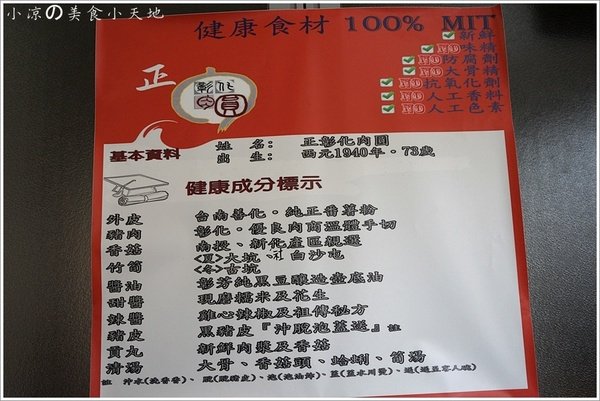 小凉の美食小天地
健康食材 100% MIT
新鮮
味精
防腐劑
大骨精
抗氧化劑
人工香料
人工色素
正 彰化肉圓
基本資料
姓 名: 正彰化肉圓
出 生: 西元1940年。73歲
健康成分標示
外皮 台南善化。純正番薯粉
豬肉 彰化。優良肉商溫體手切
香菇 南投、新化產區親選
竹筍 <夏>大坑、白沙屯
<冬>古坑
醬油 彰芳純黑豆釀造壺底油
甜醬 現磨糯米及花生
辣醬 雞心辣椒及祖傳秘方
豬皮 黑豬皮『沖脫泡蓋送』註
貢丸 新鮮肉漿及香菇
清湯 大骨、香菇頭、蛤蜊、筍湯